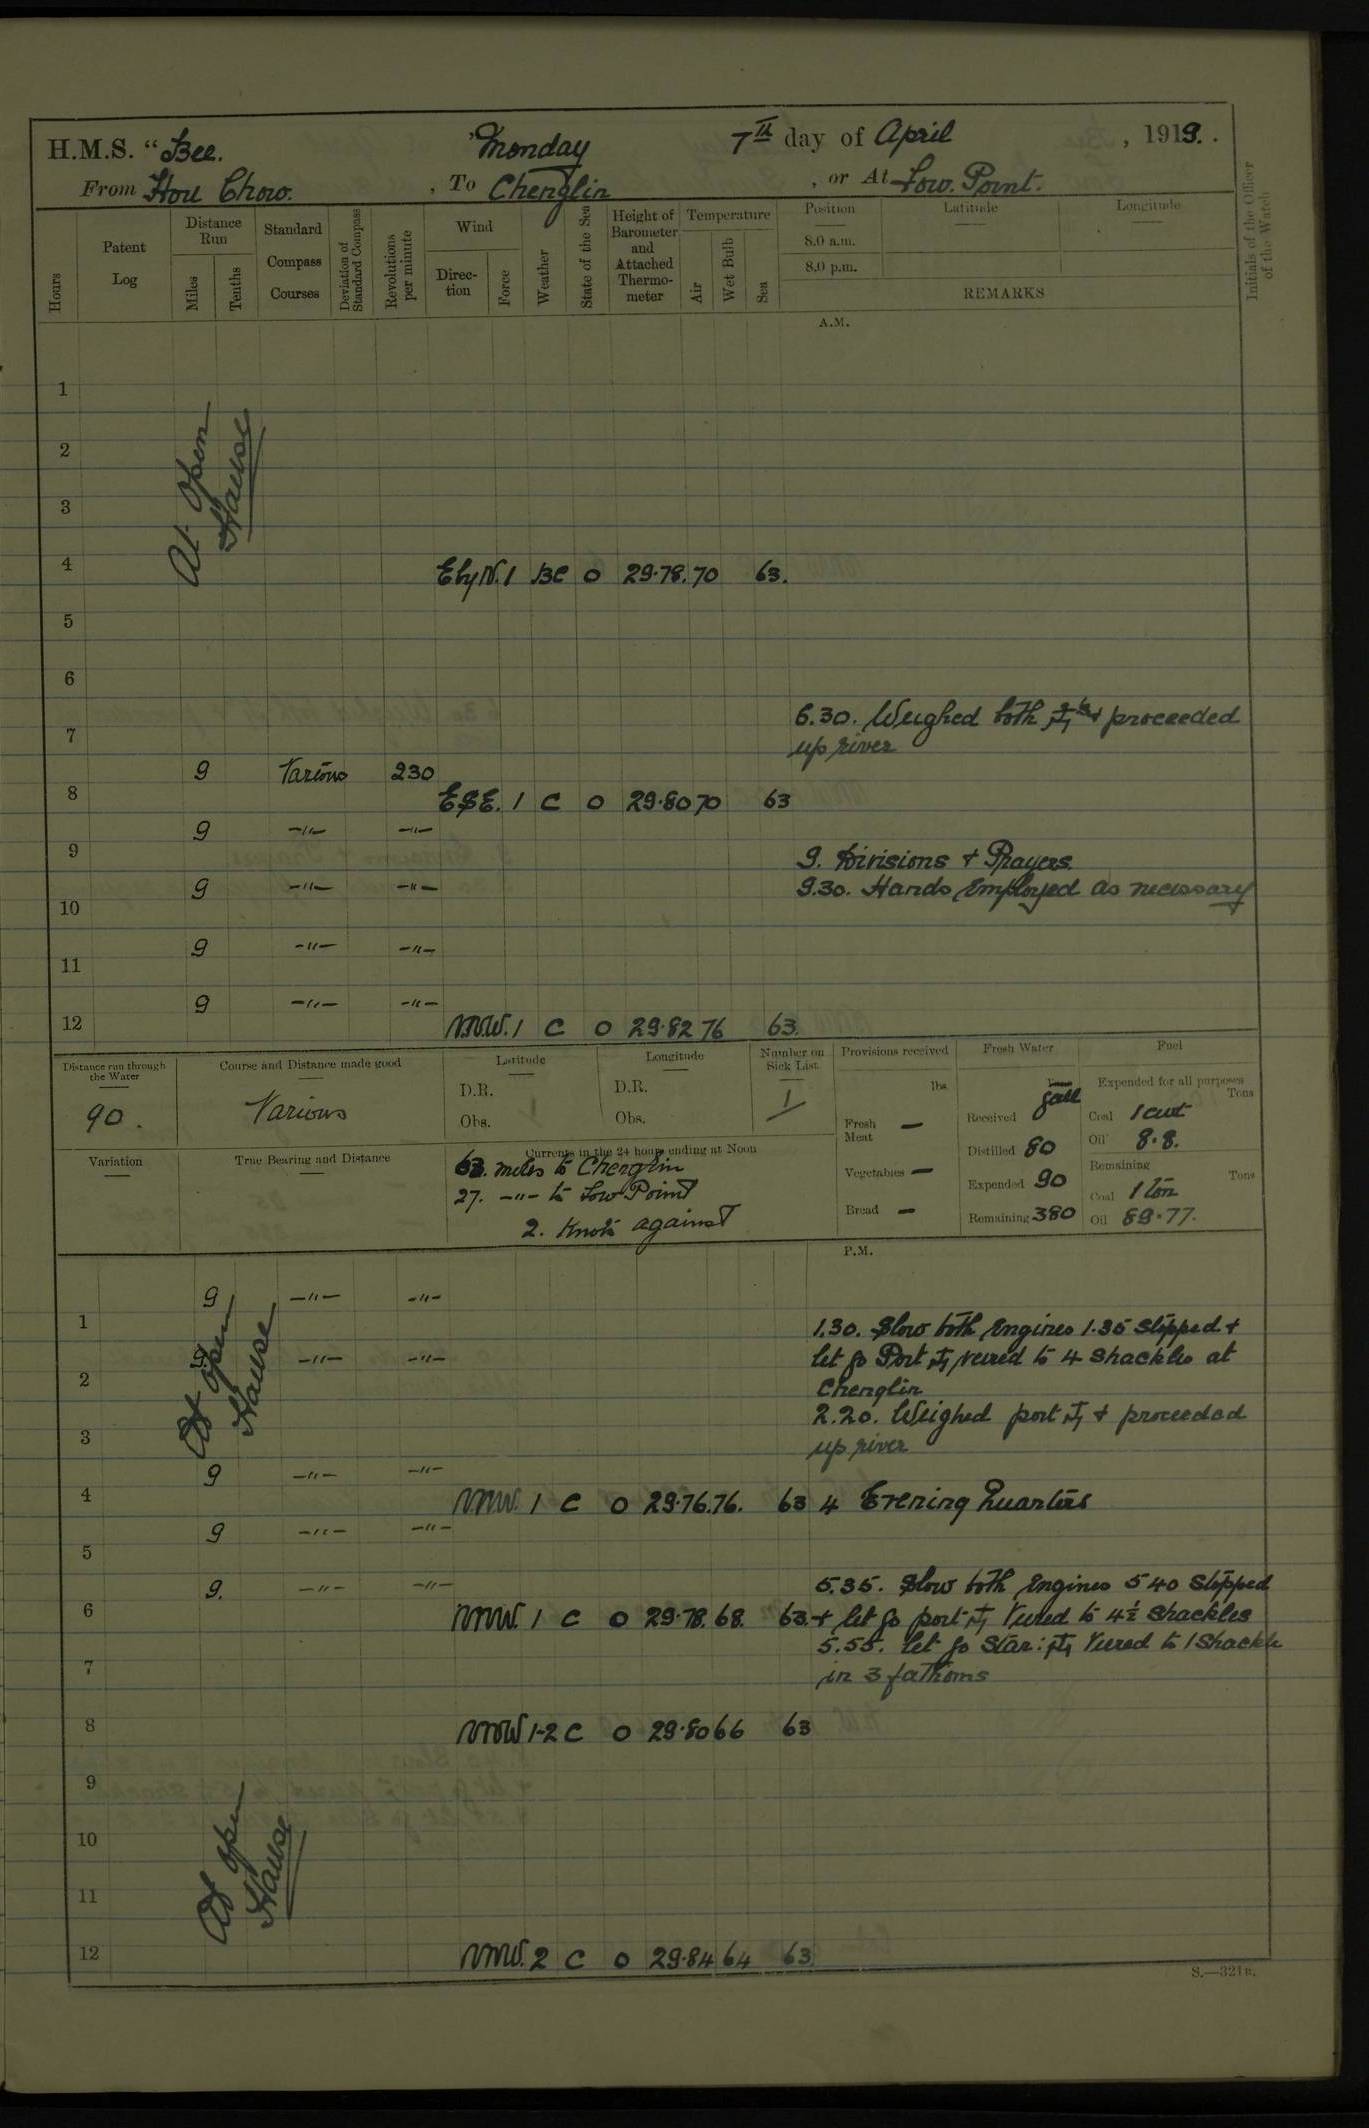 H.M.S. "Bee. Monday 7th day of April, 1919.
From Hou Chow., To Chenglin, or At Low Point.
Hours
Patent Log
Distance Run
Miles
Tenths
Standard Compass Courses
Deviation of Standard Compass
Revolutions per minute
Wind
Direction
Force
Weather
State of the Sea
Height of Barometer and Attached Thermometer
Temperature
Air
Wet Bulb
Sea
Position Latitude Longitude
8.0 a.m.
8.0 p.m.
REMARKS
Initials of the Officer of the Watch
A.M.
1
2
3
At Open Hause
4 E by N. 1 BC 0 29.78. 70 63.
5
6
6.30. Weighed both & proceeded
7 up river
9 Various 230
8 ESE. 1 C 0 29.80 70 63
9 -"- -"-
9 9. Divisions & Prayers.
9 -"- -"- 9.30. Hands Employed as necessary
10
9 -"- -"-
11
9 -"- -"-
12 NNW. 1 C 0 29.82 76 63.
Distance run through the Water
90.
Course and Distance made good
Various
Latitude
D.R.
Obs.
Longitude
D.R.
Obs.
Number on Sick List
1
Provisions received
lbs.
Fresh Meat —
Vegetables —
Bread —
Fresh Water
Tons
gall
Received
Distilled 80
Expended 90
Remaining 380
Fuel
Expended for all purposes
Tons
Coal 1 cwt
Oil 8.8.
Remaining
Tons
Coal 1 ton
Oil 89.77.
Variation
True Bearing and Distance
Currents in the 24 hours ending at Noon
63. miles to Chenglin
27. -"- to Low Point
2. Knots against
P.M.
9 -"- -"-
1 1.30. Slow both Engines 1.35 Stopped &
9 -"- -"- let go Port veered to 4 Shackles at
2 Chenglin
2.20. Weighed port & proceeded
3 up river
At Open Hause
9 -"- -"-
4 NNW. 1 C 0 29.76. 76. 63 4 Evening Quarters
9 -"- -"-
5
9. -"- -"- 5.35. Slow both Engines 5 40 Stopped
6 NNW. 1 C 0 29.78. 68. 63. & let go port Veered to 4½ Shackles
5.55. let go Star: Veered to 1 Shackle
7 in 3 fathoms
8 NNW 1-2 C 0 29.80 66 63
9
10
11
At Open Hause
12 NNW. 2 C 0 29.84 64 63
S.—321B.